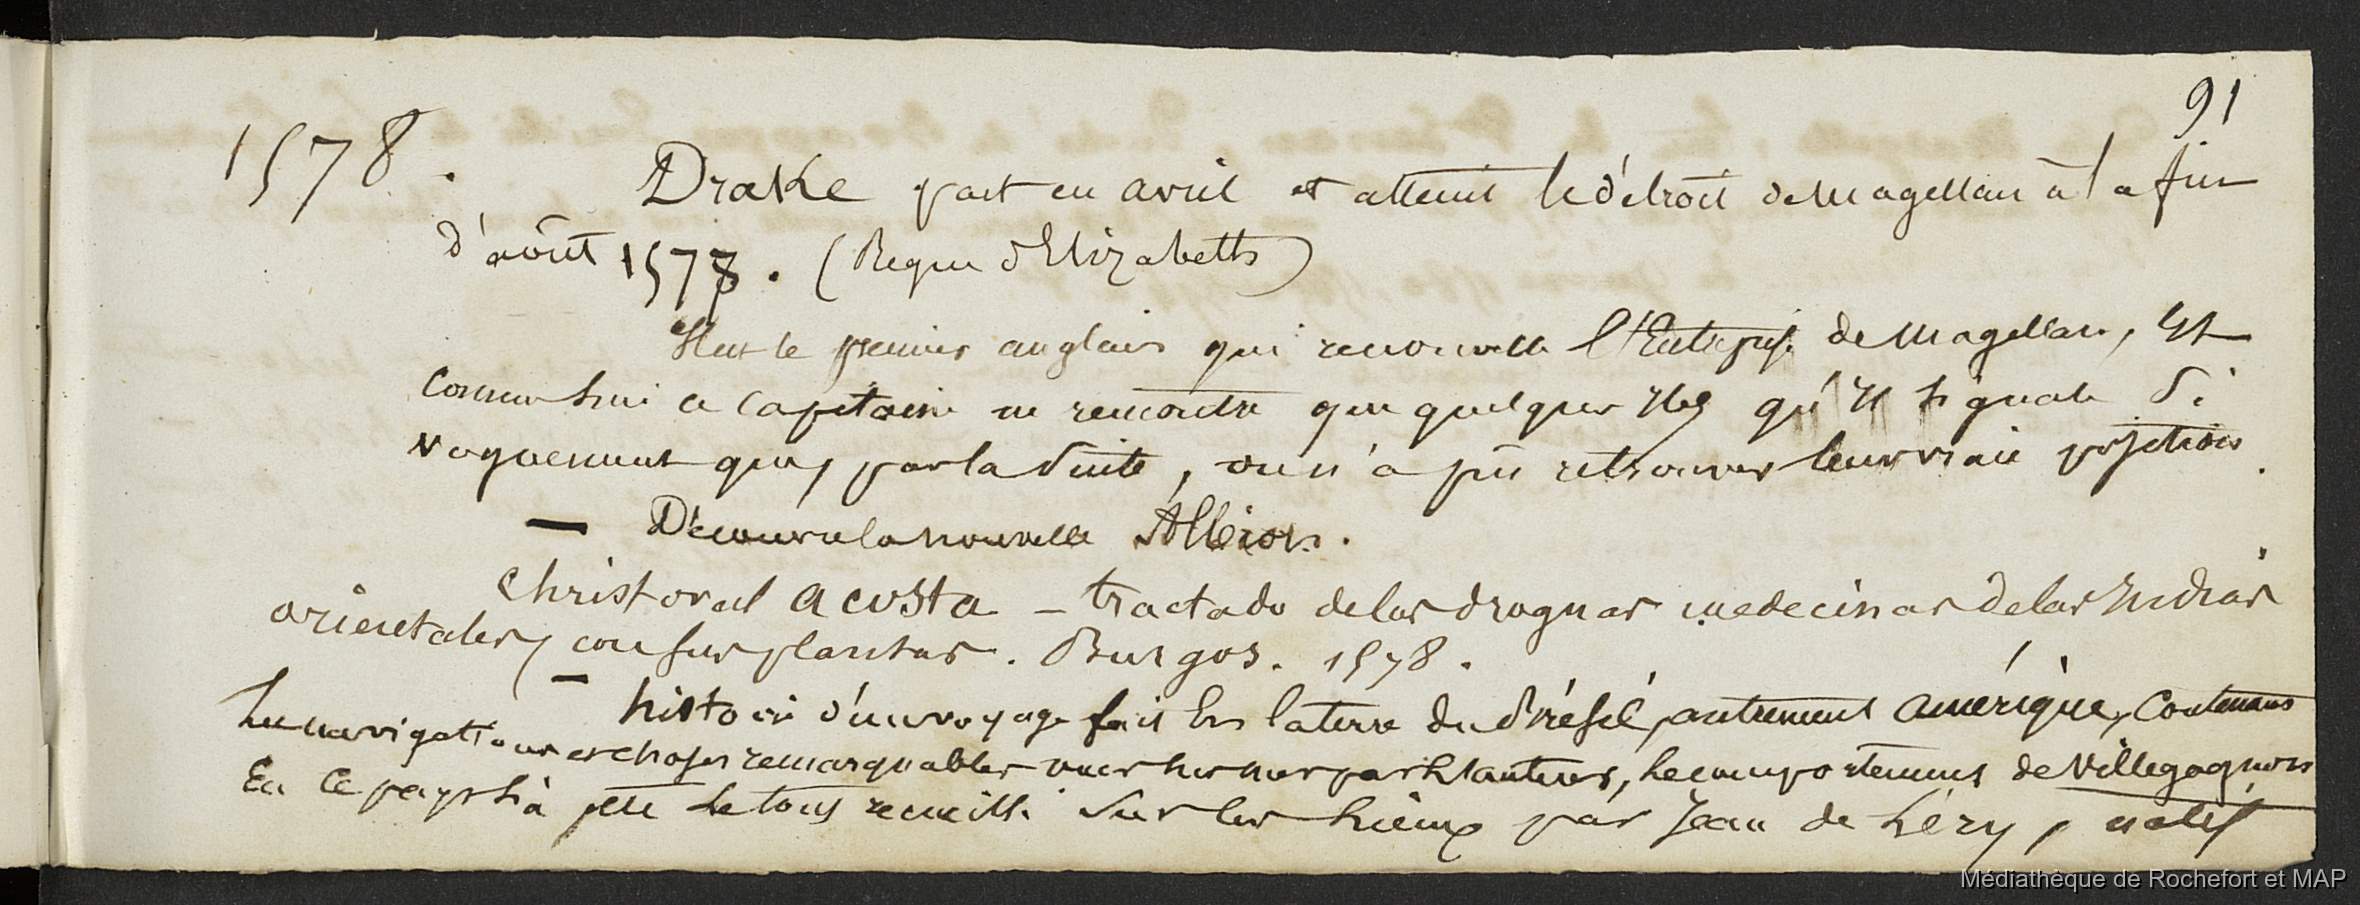 91
1578. Drake part en avril et atteint le détroit de Magellan à la fin
d'août 1578. (Regne d'Elizabeth)
Il est le premier anglais qui renouvelle l'Entreprise de Magellan, Et
comme lui ce capitaine ne rencontre que quelques Iles qu'Il signale si
vaguement que, par la suite, on n'a pû retrouver leur vraie position.
— Découvre la nouvelle Albion.
Christoval acosta - tractado de las droguas medecinas de las Indias
orientales, con sus plantas. Burgos. 1578.
— histoire d'un voyage fait En la terre du Brésil, autrement amérique, Contenant
La navigation et choses remarquables vues sur mer par l'auteur, le comportement de Villegagnon
En Ce pays là, etc Le tout recueilli Sur les Lieux par Jean de Léry, natif
Médiathèque de Rochefort et MAP